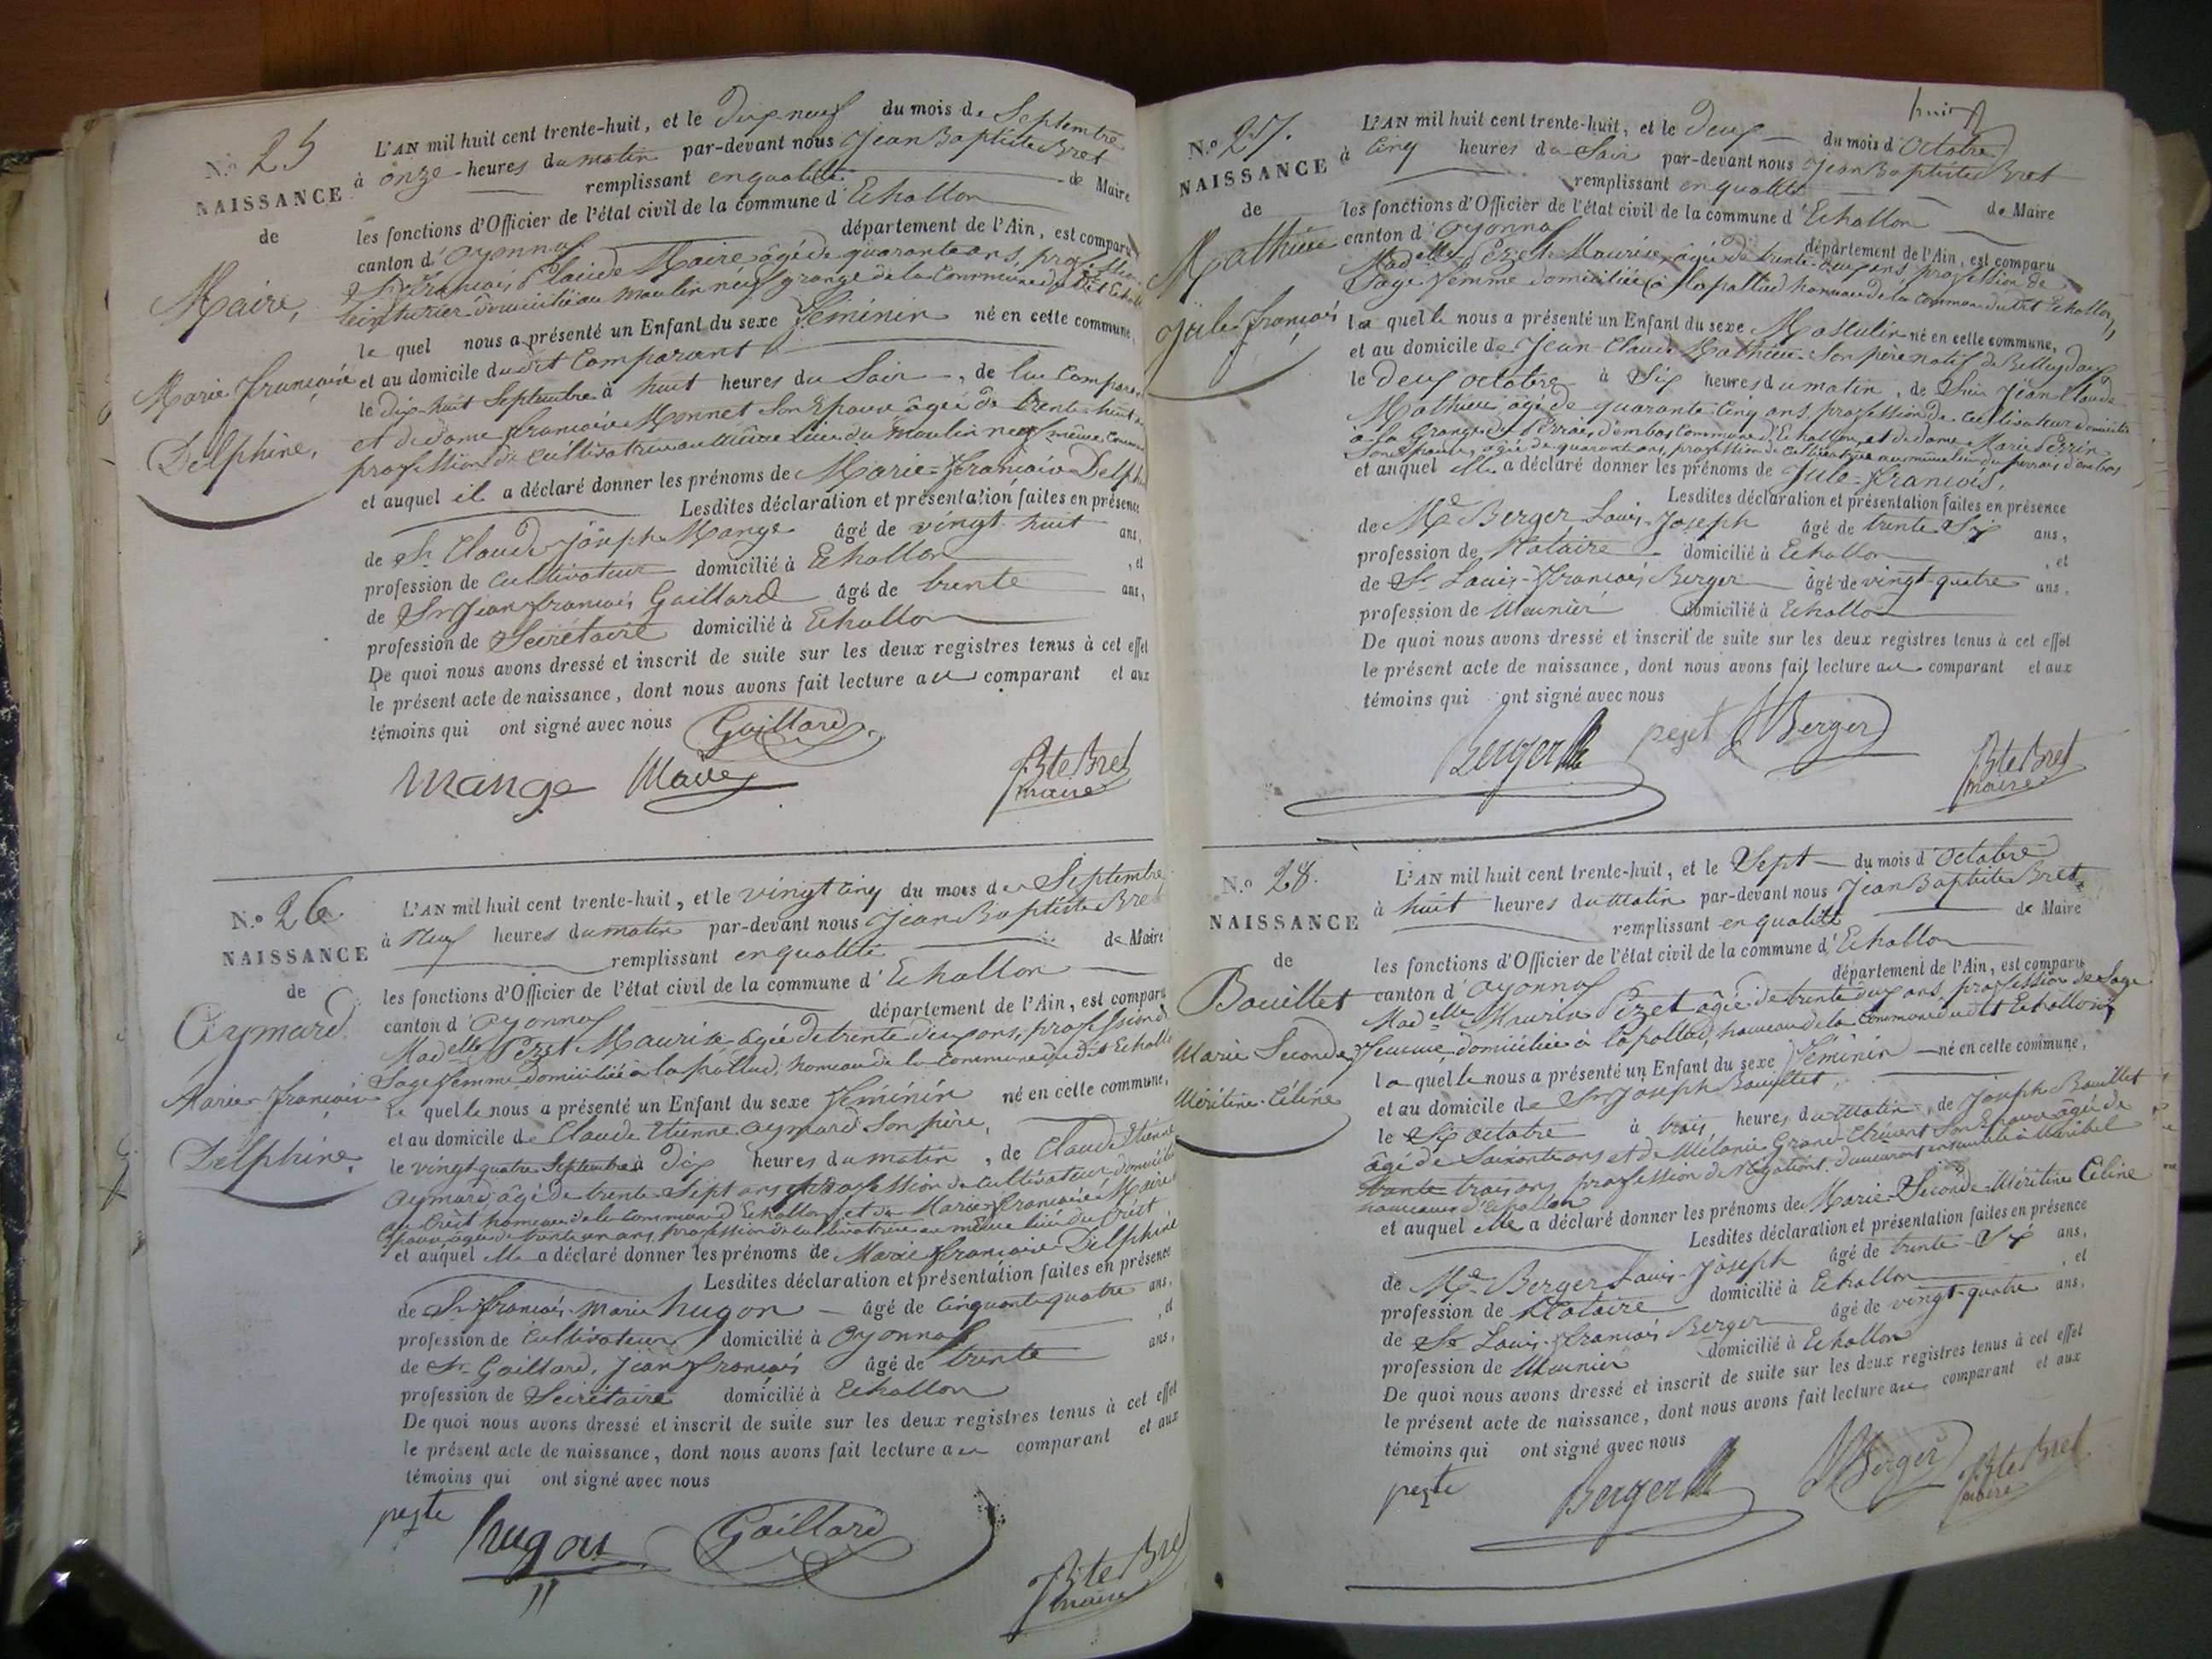 N.o 25
NAISSANCE
de
Maire,
Marie françoise
Delphine,
L'AN mil huit cent trente-huit, et le Dix neuf du mois de Septembre
à onze heures du matin par-devant nous Jean Baptiste Bret
remplissant en qualité de Maire
les fonctions d'Officier de l'état civil de la commune d'Echallon
canton d'Oyonnax département de l'Ain, est comparu
Sr François Claude Maire âgé de quarante ans, profession
teinturier domicilié au Moulin neuf grange de la Commune dudit Echallon
le quel nous a présenté un Enfant du sexe féminin né en cette commune,
et au domicile dudit Comparant
le dix-huit Septembre à huit heures du Soir, de lui Comparant
et de dame françoise Monnet Son Epouse âgée de trente huit
profession de cultivatrice au même lieu du Moulin neuf même Commune
et auquel il a déclaré donner les prénoms de Marie-Françoise Delphine
Lesdites déclaration et présentation faites en présence
de Sr Claude Joseph Mange âgé de vingt huit ans,
profession de Cultivateur domicilié à Echallon, et
de Sr Jean françois Gaillard âgé de trente ans,
profession de Secrétaire domicilié à Echallon
De quoi nous avons dressé et inscrit de suite sur les deux registres tenus à cet effet
le présent acte de naissance, dont nous avons fait lecture au comparant et aux
témoins qui ont signé avec nous Gaillard
Mange Maire JBte Bret
maire
N.o 26
NAISSANCE
de
Aymard
Marie-françoise
Delphine,
L'AN mil huit cent trente-huit, et le vingt cinq du mois de Septembre
à Neuf heures du matin par-devant nous Jean Baptiste Bret
remplissant en qualité de Maire
les fonctions d'Officier de l'état civil de la commune d'Echallon
canton d'Oyonnax département de l'Ain, est comparu
Madelle Pezet Maurise âgée de trente deux ans, profession de
Sage femme domiciliée à la pallud, hameau de la Commune dudit Echallon
la quelle nous a présenté un Enfant du sexe féminin né en cette commune,
et au domicile de Claude Etienne Aymard Son père,
le vingt quatre Septembre à dix heures du matin, de Claude Etienne
Aymard âgé de trente Sept ans profession de Cultivateur domicilié
au Crêt hameau de la Commune d'Echallon et de Marie françoise Maire
Epouse âgée de trente un ans, profession de cultivatrice au même lieu du Crêt
et auquel elle a déclaré donner les prénoms de Marie françoise Delphine
Lesdites déclaration et présentation faites en présence
de Sr françois-Marie hugon âgé de Cinquante quatre ans,
profession de Cultivateur domicilié à Oyonnax, et
de Sr Gaillard, Jean françois âgé de trente ans,
profession de Secrétaire domicilié à Echallon
De quoi nous avons dressé et inscrit de suite sur les deux registres tenus à cet effet
le présent acte de naissance, dont nous avons fait lecture au comparant et aux
témoins qui ont signé avec nous
hugon Gaillard
JBte Bret
maire
huit
N.o 27.
NAISSANCE
de
Mathieu
Jule françois
L'AN mil huit cent trente-huit, et le Deux du mois d'Octobre
à Cinq heures du Soir par-devant nous Jean Baptiste Bret
remplissant en qualité de Maire
les fonctions d'Officier de l'état civil de la commune d'Echallon
canton d'Oyonnax département de l'Ain, est comparu
Madelle Pezet Maurise âgée de trente-deux ans profession de
Sage femme domiciliée à la pallud hameau de la Commune dudit Echallon,
la quelle nous a présenté un Enfant du sexe Masculin né en cette commune,
et au domicile de Jean Claude Mathieu Son père natif de Belleydoux
le Deux octobre à Six heures du matin, de Sieur Jean Claude
Mathieu âgé de quarante Cinq ans profession de Cultivateur domicilié
à la Grange du Perrais d'embas Commune d'Echallon et de dame Marie Perrin
Son Epouse, âgée de quarante ans, profession de Cultivatrice au même lieu du perrais d'embas
et auquel elle a déclaré donner les prénoms de Jule-François,
Lesdites déclaration et présentation faites en présence
de Me Berger Louis Joseph âgé de trente Six ans,
profession de Notaire domicilié à Echallon, et
de Sr Louis-François Berger âgé de vingt-quatre ans,
profession de Meunier domicilié à Echallon
De quoi nous avons dressé et inscrit de suite sur les deux registres tenus à cet effet
le présent acte de naissance, dont nous avons fait lecture au comparant et aux
témoins qui ont signé avec nous
Berger pezet Berger JBte Bret
maire
N.o 28.
NAISSANCE
de
Bouillet
Marie Seconde
Méritine Céline
L'AN mil huit cent trente-huit, et le Sept du mois d'Octobre
à huit heures du Matin par-devant nous Jean Baptiste Bret
remplissant en qualité de Maire
les fonctions d'Officier de l'état civil de la commune d'Echallon
canton d'Oyonnax département de l'Ain, est comparu
Madelle Maurise Pezet âgée de trente deux ans, profession de Sage
femme domiciliée à la pallud, hameau de la Commune dudit Echallon
la quelle nous a présenté un Enfant du sexe Féminin né en cette commune,
et au domicile de Sr Joseph Bouillet,
le Six octobre à trois heures du Matin, de Joseph Bouillet
âgé de Soixante ans et de Mélanie Grand-Clément Son Epouse âgée de
trente trois ans profession de Négotiant demeurant ensemble à
hameau d'Echallon
et auquel elle a déclaré donner les prénoms de Marie-Seconde-Méritine Céline
Lesdites déclaration et présentation faites en présence
de Me Berger Louis-Joseph âgé de trente-Six ans,
profession de Notaire domicilié à Echallon, et
de Sr Louis-françois Berger âgé de vingt-quatre ans,
profession de Meunier domicilié à Echallon
De quoi nous avons dressé et inscrit de suite sur les deux registres tenus à cet effet
le présent acte de naissance, dont nous avons fait lecture au comparant et aux
témoins qui ont signé avec nous
Berger Berger JBte Bret
maire